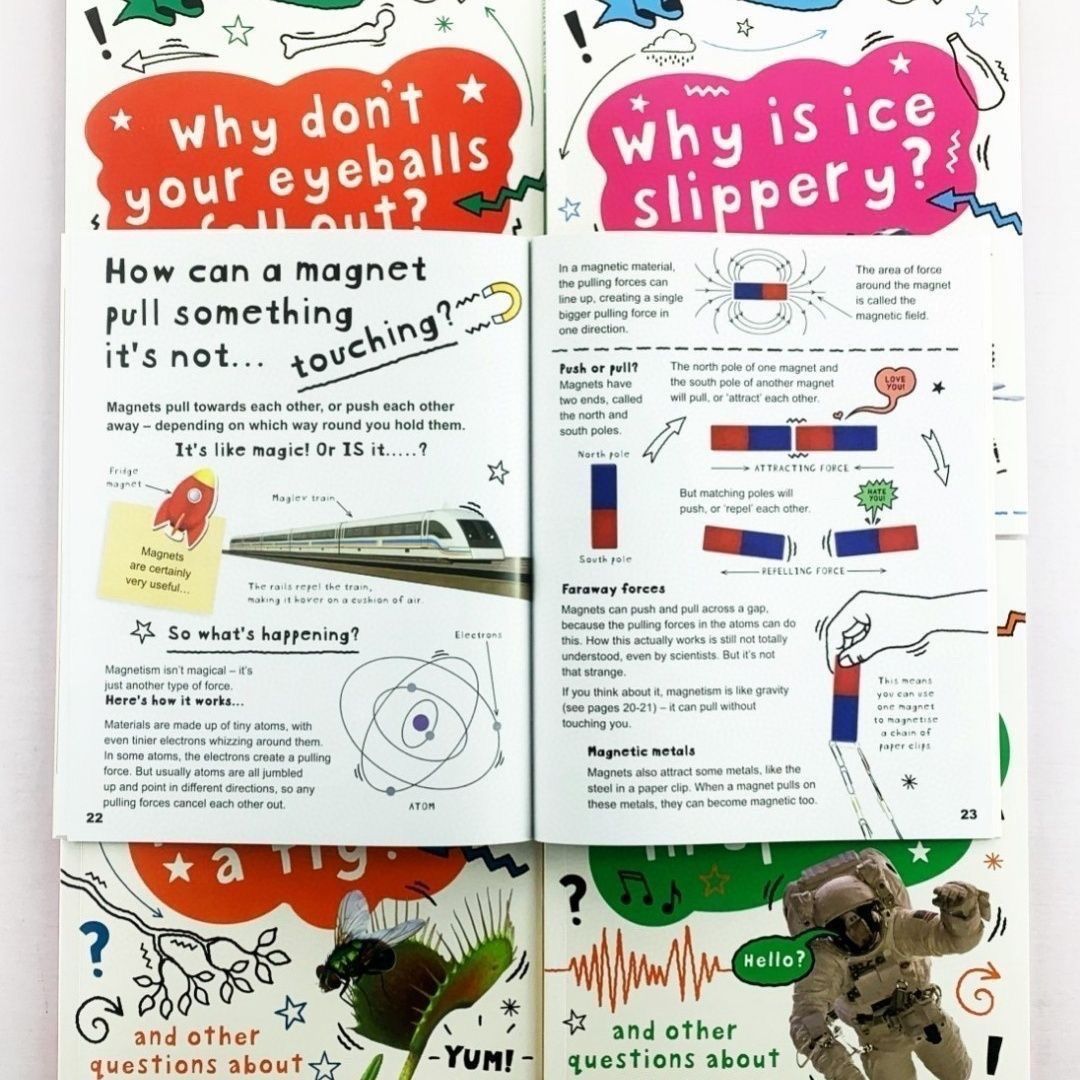 Why don't
your eyeballs
fall out?
Why is ice
slippery?
How can a magnet
pull something
it's not...
touching?
Magnets pull towards each other, or push each other
away – depending on which way round you hold them.
It's like magic! Or IS it.....?
Fridge
magnet
Maglev train
Magnets
are certainly
very useful...
The rails repel the train,
making it hover on a cushion of air.
So what's happening?
Electrons
Magnetism isn't magical – it's
just another type of force.
Here's how it works...
Materials are made up of tiny atoms, with
even tinier electrons whizzing around them.
In some atoms, the electrons create a pulling
force. But usually atoms are all jumbled
up and point in different directions, so any
pulling forces cancel each other out.
ATOM
22
In a magnetic material,
the pulling forces can
line up, creating a single
bigger pulling force in
one direction.
The area of force
around the magnet
is called the
magnetic field.
Push or pull?
Magnets have
two ends, called
the north and
south poles.
The north pole of one magnet and
the south pole of another magnet
will pull, or 'attract' each other.
LOVE
YOU!
North pole
South pole
ATTRACTING FORCE
But matching poles will
push, or 'repel' each other.
HATE
YOU!
REPELLING FORCE
Faraway forces
Magnets can push and pull across a gap,
because the pulling forces in the atoms can do
this. How this actually works is still not totally
understood, even by scientists. But it's not
that strange.
If you think about it, magnetism is like gravity
(see pages 20-21) – it can pull without
touching you.
This means
you can use
one magnet
to magnetise
a chain of
paper clips
Magnetic metals
Magnets also attract some metals, like the
steel in a paper clip. When a magnet pulls on
these metals, they can become magnetic too.
23
a fly?
and other
questions about
YUM!
Hello?
and other
questions about